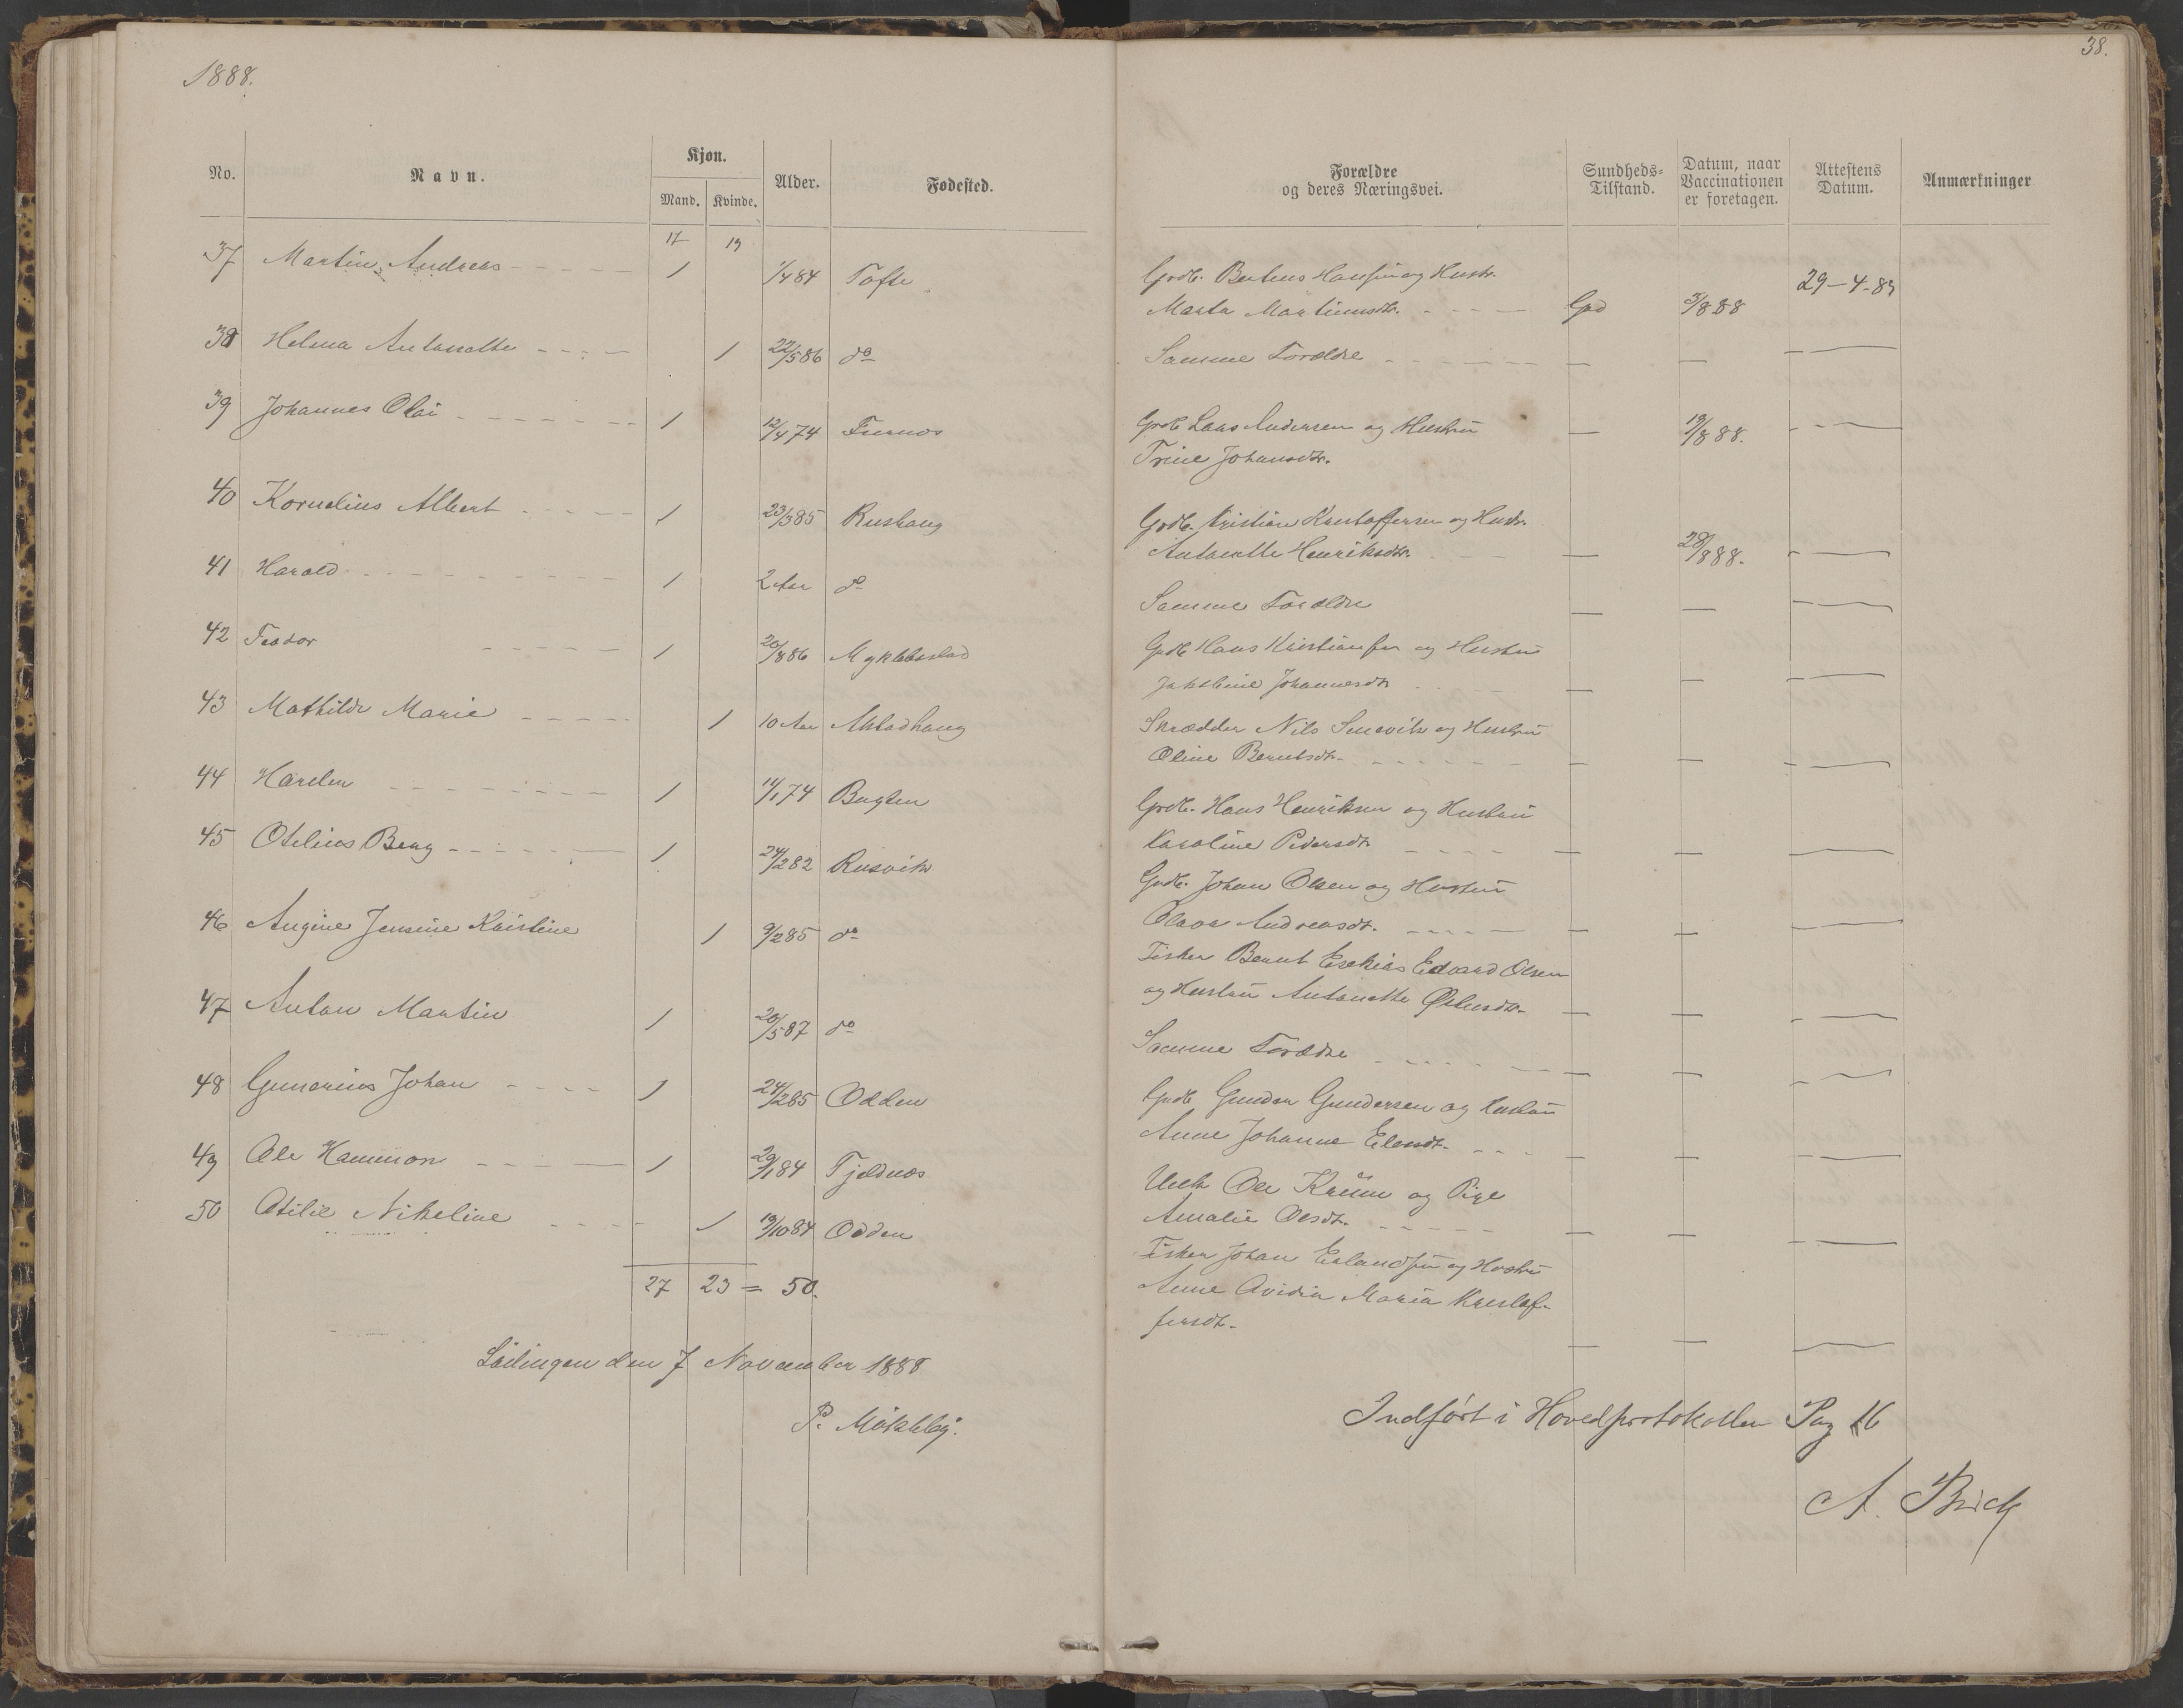 1888.
38.
No. Navn. Kjøn. Mand. Kvinde. Alder. Fødested.
Forældre og deres Næringsvei. Sundheds-Tilstand. Datum, naar Vaccinationen er foretagen. Attestens Datum. Anmærkninger
17 19
37 Martin Andreas - - - - - 1 1/4 84 Tofte
Grdb. Berteus Hansen og Hustr.
Marta Martinusdtr. - - - - God 3/8 88 29-4-89
38 Helma Antonette - - - - 1 22/5 86 do
Samme Forældre - - - - - - — — —
39 Johannes Olai - - - - - - 1 12/4 74
Grdb Laas Andersen og Hustru — 19/8 88. —
Trine Johansdtr.
40 Kornelius Albert - - - - - 1 23/3 85 Rushaug
Grdb. Kristian Kristoffersen og Hustr.
Antonette Henriksdtr. - - - — 28/8 88. —
41 Harald - - - - - - - - 1 2 Aar do
Samme Forældre — — —
42 Teodor - - - - - 1 20/8 86 Myklebostad
Grdb Hans Kristiansen og Hustru
Jakobine Johannesdtr - - - — — —
43 Mathilde Marie - - - - - 1 10 Aar
Skrædder Nils Smevik og Hustru
Oline Berntsdtr. - - - - - — — —
44 - - - - - - - 1 14/1 74 Bugten
Grdb. Hans Henriksen og Hustru
Karoline Pedersdtr - - - - — — —
45 Otelius Berg - - - - - 1 24/2 82 Rusvik
Grdb. Johan Olsen og Hustru
Olava Andreasdt. - - - - — — —
46 Augine Jensine Kristine 1 9/2 85 do
Fisker Bernt Esekias Edvard Olsen
og Hustru Antonette — — —
47 Anton Martin 1 20/5 87 do
Samme Forældre - - - - - — — —
48 Gunerius Johan - - - - 1 24/2 85 Odden
Grdb Gunder Gundersen og Hustru
Anne Johanne - - - — — —
49 Ole Hammon - - - - 1 29/1 84 Tjeldnæs
Ole og Pige
Amalie Olsdt. - - - - - — — —
50 Otilie Nikeline - - - - 1 19/10 84 Odden
Fisker Johan Erlandsen og Hustru
Anne Maria Kristof-
fersdt. — — —
27 23 = 50.
Lödingen den 7 November 1888
P. Mökleby.
Indført i Hovedprotokollen Pag 16
A. Brick